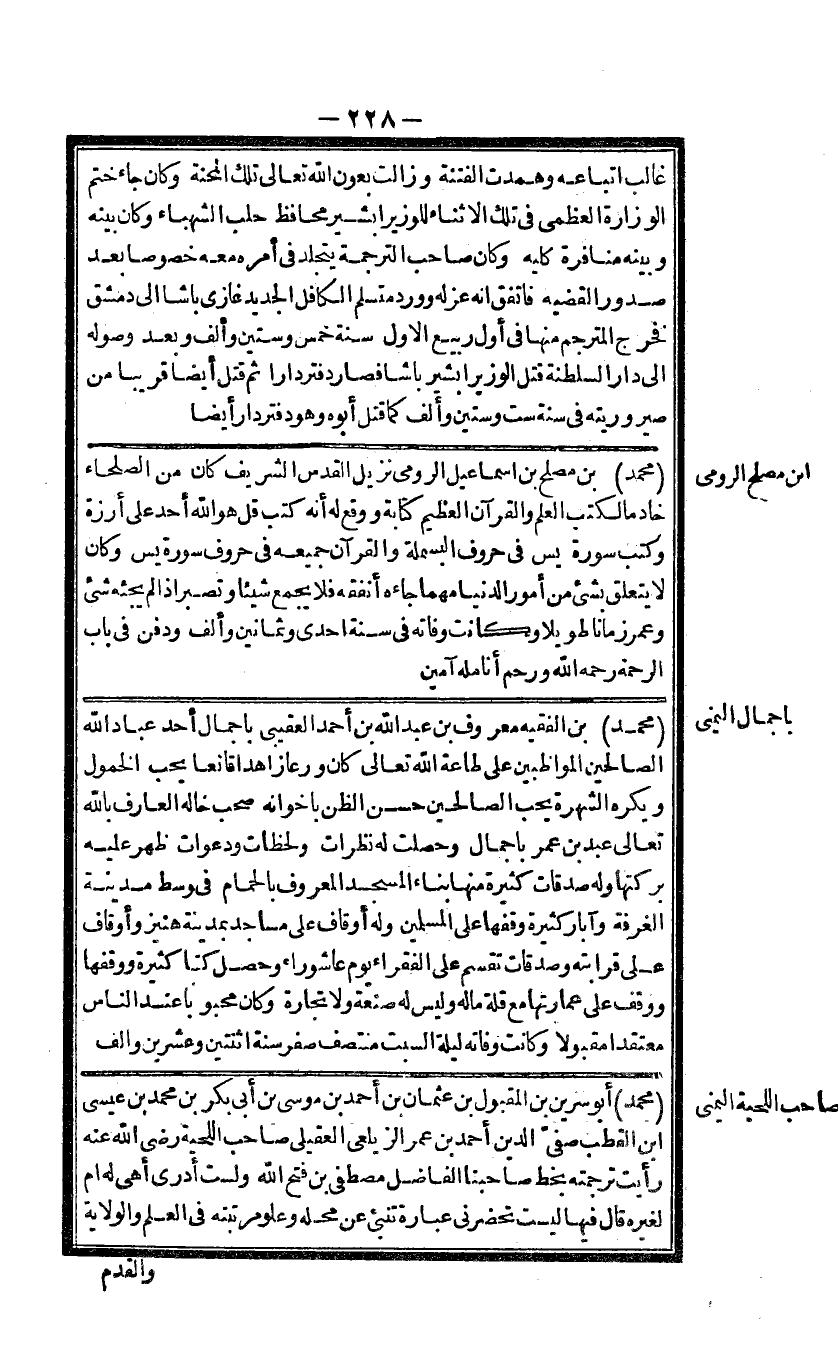 — ٢٢٨ —
غالب اتباعه وهمدت الفتنة وزالت بعون الله تعالى تلك المحنة وكان جاء ختم
الوزارة العظمى فى تلك الاثناء للوزير ابشير محافظ حلب الشهباء وكان بينه
وبينه منافرة كليه وكان صاحب الترجمة يتجلد فى أمره معه خصوصا بعد
صدور القضيه فاتفق انه عزله وورد متسلم الكافل الجديد غازى باشا الى دمشق
فخرج المترجم منها فى أول ربيع الاول سنة خمس وستين وألف وبعد وصوله
الى دار السلطنة قتل الوزير ابشير باشا فصار دفتردارا ثم قتل أيضا قريبا من
صيروريته فى سنة ست وستين وألف كما قتل أبوه وهو دفتردار أيضا
ابن مصلح الرومى
(محمد) بن مصلح بن اسماعيل الرومى نزيل القدس الشريف كان من الصلحاء
خادما لكتب العلم والقرآن العظيم كتابة ووقع له أنه كتب قل هو الله أحد على أرزة
وكتب سورة يس فى حروف البسملة والقرآن جميعه فى حروف سورة يس وكان
لا يتعلق بشئ من أمور الدنيا مهما جاءه أنفقه فلا يجمع شيئا وتصبر اذا لم يجئه شئ
وعمر زمانا طويلا وكانت وفاته فى سنة احدى وثمانين وألف ودفن فى باب
الرحمة رحمه الله ورحم أنامله آمين
باجمال اليمنى
(محمد) بن الفقيه معروف بن عبد الله بن أحمد العقيبى باجمال أحد عباد الله
الصالحين المواظبين على طاعة الله تعالى كان ورعا زاهدا قانعا يحب الخمول
ويكره الشهرة يحب الصالحين حسن الظن باخوانه صحب خاله العارف بالله
تعالى عبد بن عمر باجمال وحصلت له نظرات ولحظات ودعوات ظهر عليه
بركتها وله صدقات كثيرة منها بناء المسجد المعروف بالحمام فى وسط مدينة
الغرفة وآبار كثيرة وقفها على المسلمين وله أوقاف على مساجد بمدينة هنيز وأوقاف
على قرابته وصدقات تقسم على الفقراء يوم عاشوراء وحصل كتبا كثيرة ووقفها
ووقف على عمارتها مع قلة ماله وليس له صنعة ولا تجارة وكان محبوبا عند الناس
معتقدا مقبولا وكانت وفاته ليلة السبت منتصف صفر سنة اثنتين وعشرين والف
صاحب اللحية اليمنى
(محمد) أبو سرين بن المقبول بن عثمان بن أحمد بن موسى بن أبى بكر بن محمد بن عيسى
ابن القطب صفىّ الدين أحمد بن عمر الزيلعى العقيلى صاحب اللحية رضى الله عنه
رأيت ترجمته بخط صاحبنا الفاضل مصطفى بن فتح الله ولست أدرى أهى له ام
لغيره قال فيها ليست تحضرنى عبارة تنبئ عن محله وعلو مرتبته فى العلم والولاية
والقدم